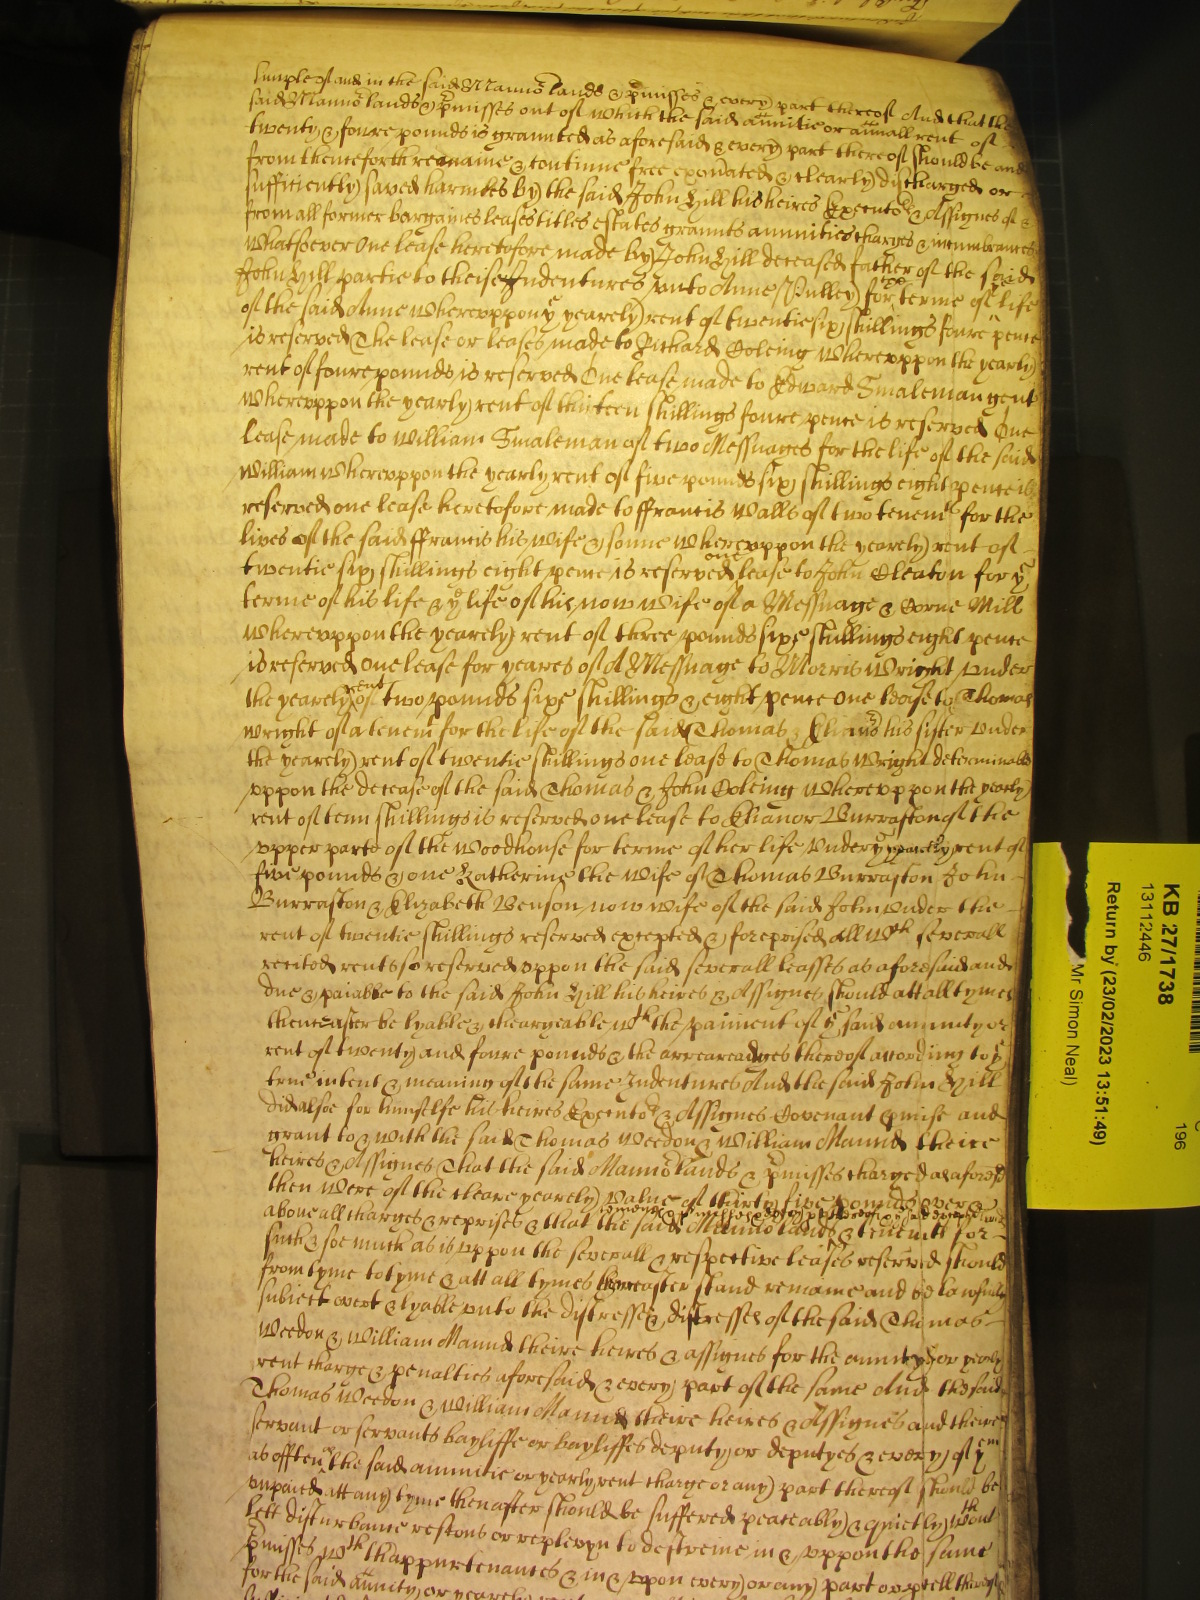 simple of and in the said Manno:r lands & p:rmisses & every part thereof And that the
said Manno:r lands & p:rmisses out of which the said annuitie or annuall rent of
twenty & foure pounds is graunted as aforesaid & every part thereof should be and
from thenceforth remaine & continue free exonerated & clearly discharged or
sufficiently saved harmles by the said John Hill his heires Executo:rs & Assignes of &
from all former bargaines leases titles estates graunts annuities charges & incumbrances
whatsoever One lease heretofore made by John Hill deceased father of the said
John Hill partie to theise Indentures unto Anne Pulley for the terme of life
of the said Anne whereuppon y:e yearely rent of twentie six shillings foure pence
is reserved The lease or leases made to Richard Coleing whereuppon the yearly
rent of foure pounds is reserved One lease made to Edward Smaleman gent
whereuppon the yearely rent of thirteen shillings foure pence is reserved One
lease made to William Smaleman of two Messuages for the life of the said
William whereuppon the yearely rent of five pounds six shillings eight pence is
reserved one lease heretofore made to ffrancis Walls of two tenem:ts for the
lives of the said ffrancis his wife & sonne whereuppon the yearely rent of
twentie six shillings eight pence is reserved one lease to John Cleaton for y:e
terme of his life & y:e life of his now wife of a Messuage & Corne Mill
whereuppon the yearely rent of three pounds sixe shillings eight pence
is reserved one lease for yeares of A Messuage to Morris Wright under
the yearely rent of two pounds sixe shillings & eight pence One lease to Thomas
Wright of a tenem:t for the life of the said Thomas & his sister under
the yearely rent of twentie shillings one lease to Thomas Wright determinable
uppon the decease of the said Thomas & John Coleing whereuppon the yearly
rent of tenn shillings is reserved one lease to Elianor Burraston of the
upper parte of the Woodhouse for terme of her life under y:e yearely rent of
five pounds & one Katherine the wife of Thomas Burraston John
Burraston & Elizabeth Benson now wife of the said John under the
rent of twentie shillings reserved excepted & foreprised all w:ch severall
recited rents so reserved uppon the said severall leasses as aforesaid and
due & paiable to the said John Hill his heires & Assignes should att all tymes
thereafter be lyable & chargeable w:th the paiment of y:e said annuity or
rent of twenty and foure pounds & the arrearadges thereof according to y:e
true intent & meaning of the same Indentures And the said John Hill
did alsoe for himselfe his heires Executo:rs & Assignes Covenant p:rmise and
grant to & with the said Thomas Weedon & William Mannd theire
heires & Assignes That the said Manno:r lands & p:rmisses charged as aforesd
then were of the cleare yearely value of thirty five pounds over &
above all charges & reprises & that the said Manno:r lands & tenem:ts for
such & soe much as is uppon the severall & respective leases reserved should
from tyme to tyme & att all tymes thereafter stand remaine and be lawfully
subiect overt & lyable unto the distresse & distresses of the said Thomas
Weedon & William Mannd theire heires & assignes for the annuity or yearly
rent charge & penalties aforesaid & every part of the same And the said
Thomas Weedon & William Mannd theire heires & Assignes and theire
servant or servants bayliffe or bayliffes deputy or deputyes & every of y:em
as often as the said annuitie or yearly rent charge or any part thereof should be
unpaied att any tyme thereafter should be suffered peaceably & quietly w:thout
lett disturbance rescous or replevyn to destreine in & uppon the same
p:rmisses w:th thappurtenances & in & upon every or any part or p:rcell thereof
for the said annuity or yearely rent
KB 27/1738
13112446
Return by (23/02/2023 13:51:49)
Mr Simon Neal)
196